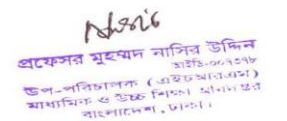 প্রফেসর মুহম্মদ নাসির উদ্দিন
উপ-পরিচালক (এইচআরএম)
মাধ্যমিক ও উচ্চ শিক্ষা অধিদপ্তর
বাংলাদেশ, ঢাকা।